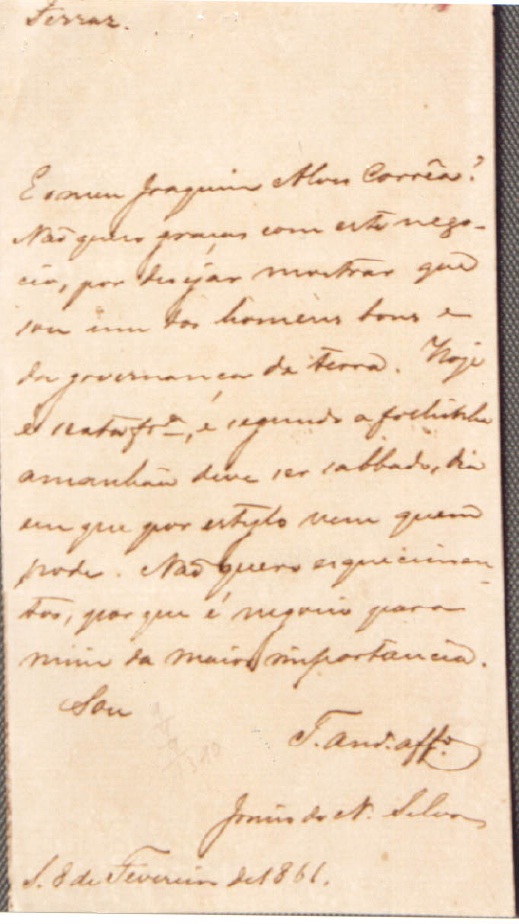 Ferraz.
E o meu Joaquim Alves Corrêa?
Não quero graças com este nego-
cio, por desejar mostrar que
sou um dos homens bons e
da governança da terra. Hoje
é sexta fra, e segundo a folhinha
amanhãa deve ser sabbado, dia
em que por estylo vem quem
pode. Não quero esquecimen-
tos, por que é negocio para
mim da maior importancia.
Sou
T. and. affo
do N. Silva
S. 8 de Fevereiro de 1861.